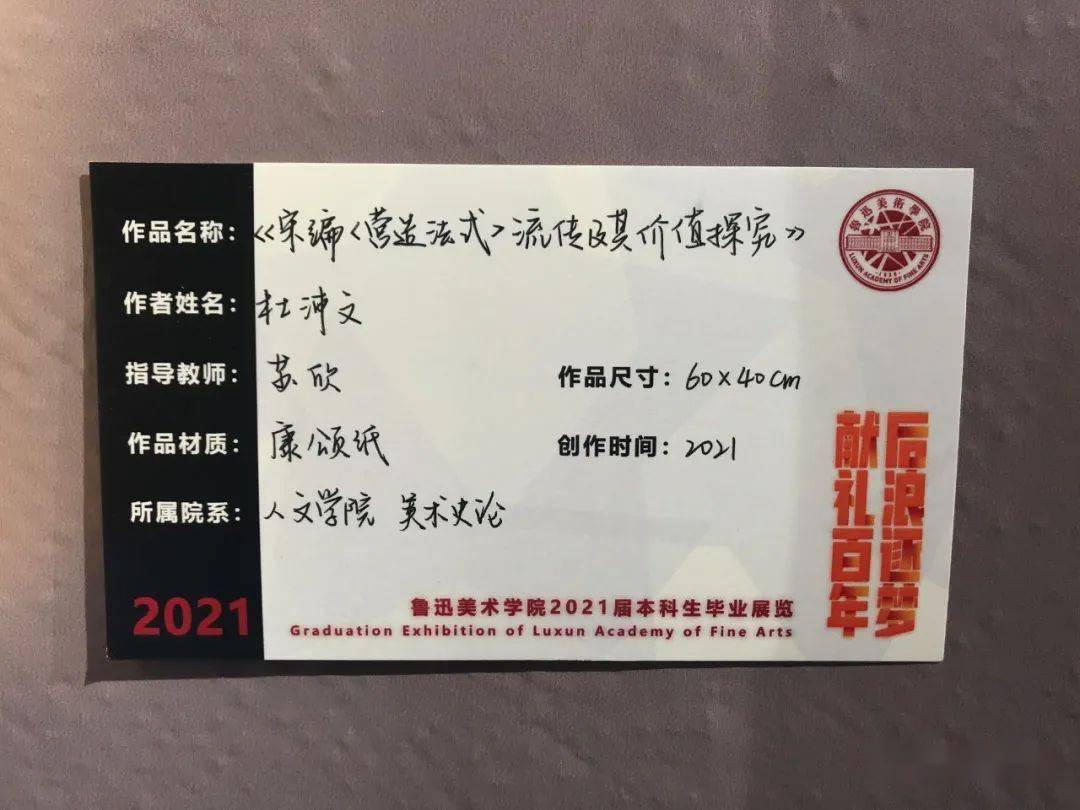 作品名称：《宋编〈营造法式〉流传及其价值探究》
作者姓名：杜沛文
指导教师：苏欣
作品尺寸：60×40cm
作品材质：康颂纸
创作时间：2021
所属院系：人文学院 美术史论
2021
鲁迅美术学院2021届本科生毕业展览
Graduation Exhibition of Luxun Academy of Fine Arts
后浪逐梦
献礼百年
鲁迅美術學院
1938
LUXUN ACADEMY OF FINE ARTS